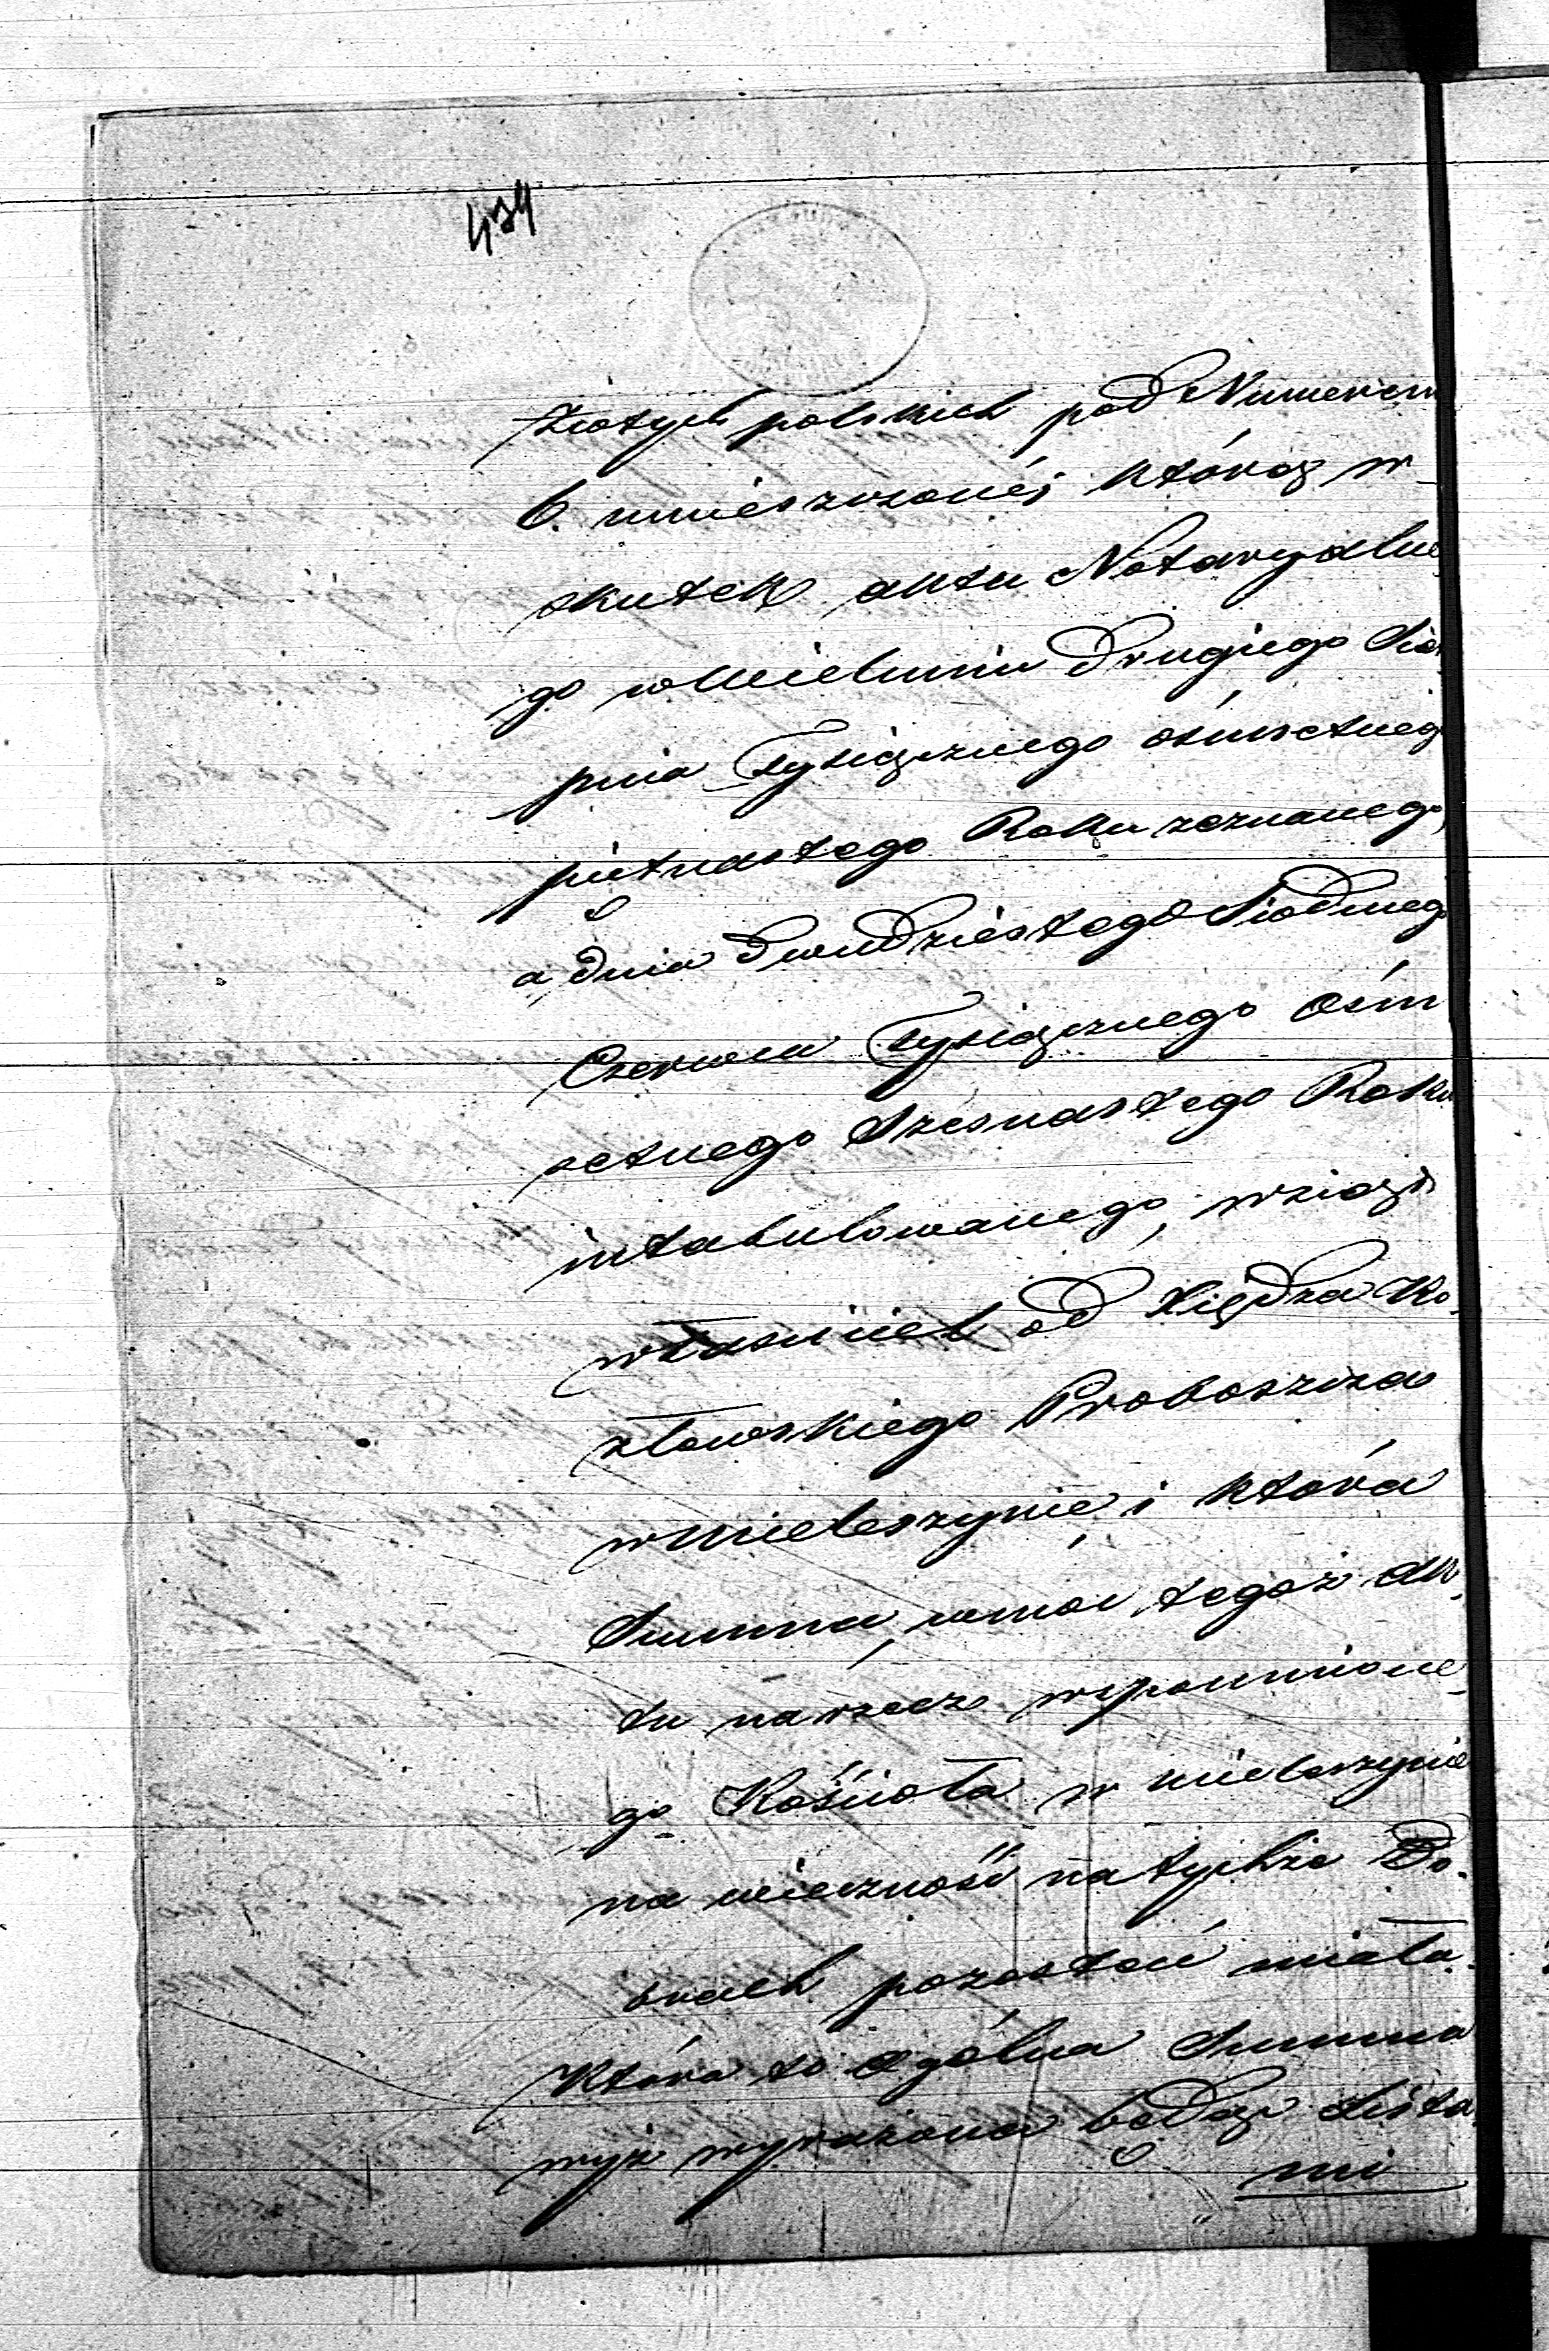 474
złotych polskich pod Numerem
6. umieszczonéj którą w
skutek aktu Notaryalne
go w Wieluniu Drugiego Sier
pnia Tysiącznego ośmsetnego
piętnastego Roku zeznanego,
a dnia Dwudziestego Siódmego
Czerwca Tysiącznego Ośm
setnego Szesnastego Roku
intabulowanego, wziął
właściciel od Xiędza Ko
złowskiego Proboszcza
w Mieleszynie i która
Summa, wmoc tegoż ak
tu na rzecz wspomnione
go Kościoła w Mieleszynie
na wieczność na tychże Do
brach pozostać miała.
Która to ogólna Summa
wyż wyrażona będąc Lista
mi